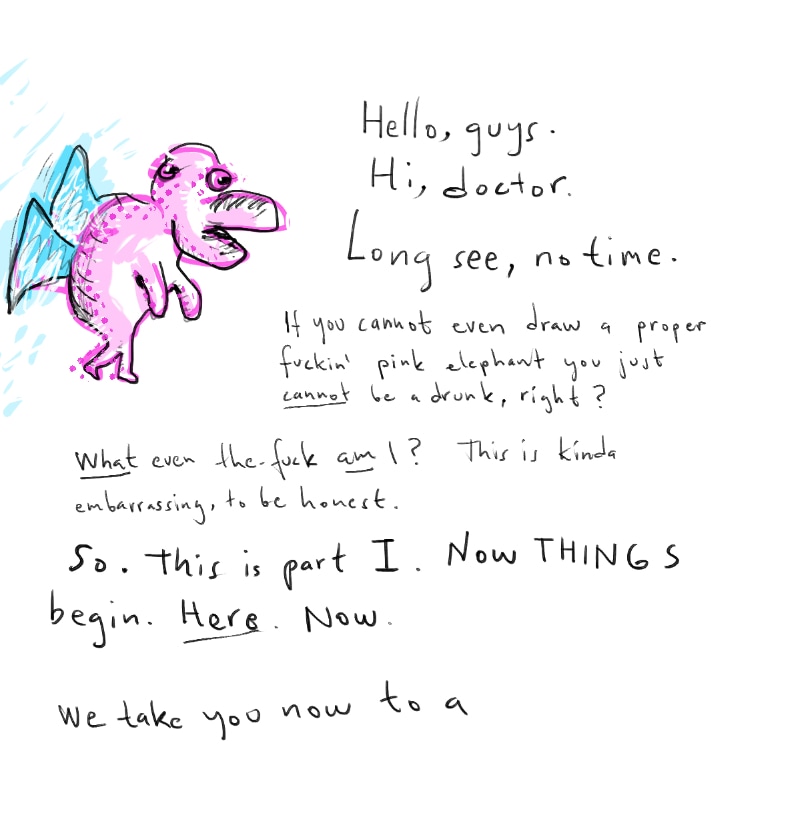 Hello, guys.
Hi, doctor.
Long see, no time.
If you cannot even draw a proper
fuckin' pink elephant you just
cannot be a drunk, right?
What even the fuck am I? This is kinda
embarrassing, to be honest.
So. This is part I. Now THINGS
begin. Here. Now.
We take you now to a